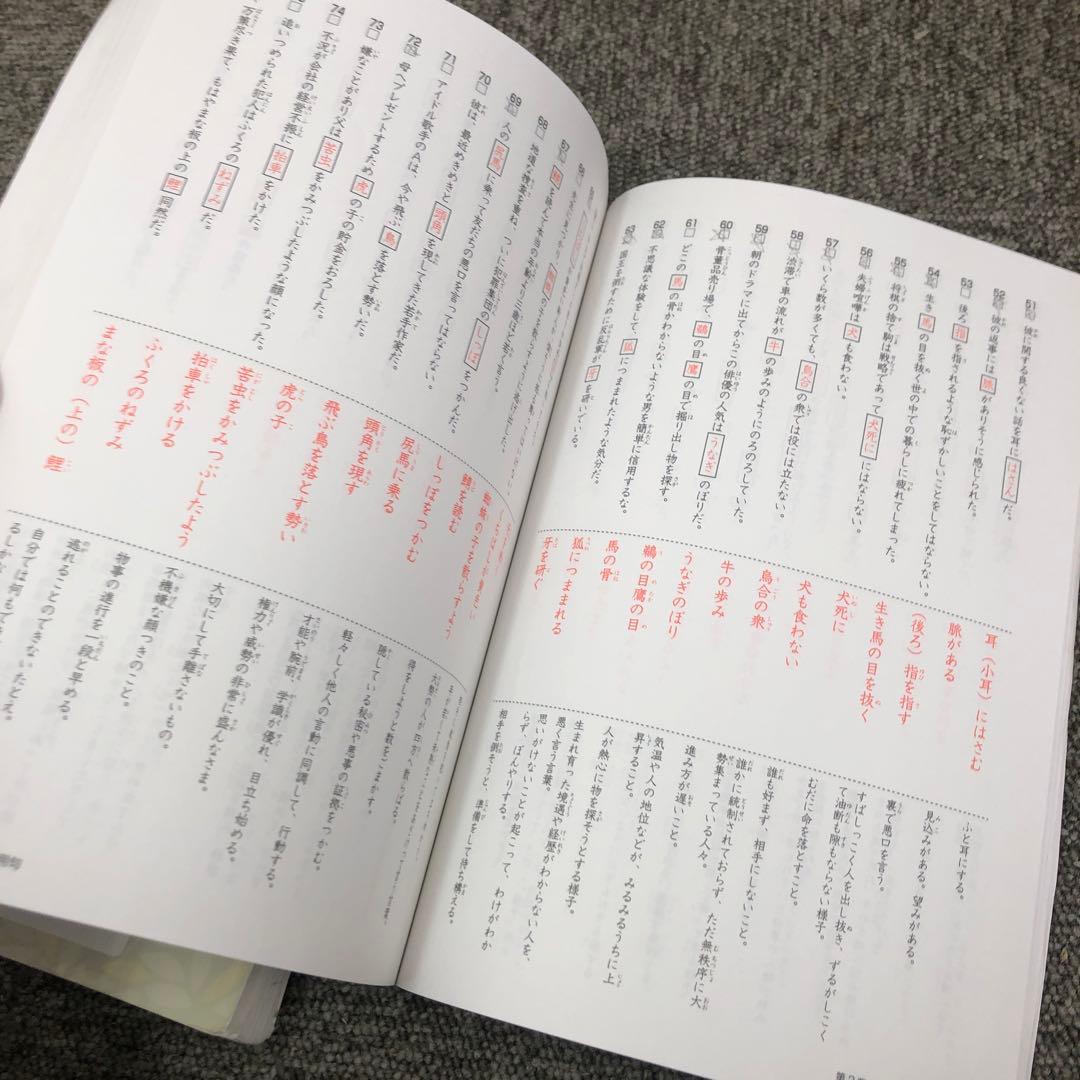 51 彼に関する良くない話を耳にはさんだ。
52 彼の返事には脈がありそうに感じられた。
53 後ろ指を指されるような恥ずかしいことをしてはならない。
54 生き馬の目を抜く世の中での暮らしに疲れてしまった。
55 将棋の捨て駒は戦略であって犬死ににはならない。
56 夫婦喧嘩は犬も食わない。
57 いくら数が多くても、烏合の衆では役には立たない。
58 渋滞で車の流れが牛の歩みのようにのろのろしていた。
59 朝のドラマに出てからこの俳優の人気はうなぎのぼりだ。
60 骨董品売り場で、鵜の目鷹の目で掘り出し物を探す。
61 どこの馬の骨かわからないような男を簡単に信用するな。
62 不思議な体験をして、狐につままれたような気分だ。
63 国王を倒すために反乱軍が牙を研いでいる。
耳(小耳)にはさむ
脈がある
(後ろ)指を指す
生き馬の目を抜く
犬死に
犬も食わない
烏合の衆
牛の歩み
うなぎのぼり
鵜の目鷹の目
馬の骨
狐につままれる
牙を研ぐ
ふと耳にする。
見込みがある。望みがある。
裏で悪口を言う。
すばしっこく人を出し抜き、ずるがしこく
て油断も隙もならない様子。
むだに命を落とすこと。
誰も好まず、相手にしないこと。
誰かに統制されておらず、ただ無秩序に大
勢集まっている人々。
進み方が遅いこと。
気温や人の地位などが、みるみるうちに上
昇すること。
人が熱心に物を探そうとする様子。
生まれ育った境遇や経歴がわからない人を、
悪く言う言葉。
思いがけないことが起こって、わけがわか
らず、ぼんやりする。
相手を倒そうと、準備をして待ち構える。
67
68 地道な捜査を重ね、ついに犯罪集団のしっぽをつかんだ。
69 人の尻馬に乗って友だちの悪口を言ってはならない。
70 彼は、最近めきめきと頭角を現してきた若手作家だ。
71 アイドル歌手のAは、今や飛ぶ鳥を落とす勢いだ。
72 母へプレゼントするため虎の子の貯金をおろした。
73 嫌なことがあり父は苦虫をかみつぶしたような顔になった。
74 不況が会社の経営不振に拍車をかけた。
追いつめられた犯人はふくろのねずみだ。
万策尽き果て、もはやまな板の上の鯉同然だ。
蜘蛛の子を散らすよう
鯖を読む
しっぽをつかむ
尻馬に乗る
頭角を現す
飛ぶ鳥を落とす勢い
虎の子
苦虫をかみつぶしたよう
拍車をかける
ふくろのねずみ
まな板の(上の)鯉
大勢の人が四方へ散らばる。
得をしようと数をごまかす。
隠している秘密や悪事の証拠をつかむ。
軽々しく他人の言動に同調して、行動する。
才能や腕前、学識が優れ、目立ち始める。
権力や威勢の非常に盛んなさま。
大切にして手離さないもの。
不機嫌な顔つきのこと。
物事の進行を一段と早める。
逃れることのできないたとえ。
自分では何もできない